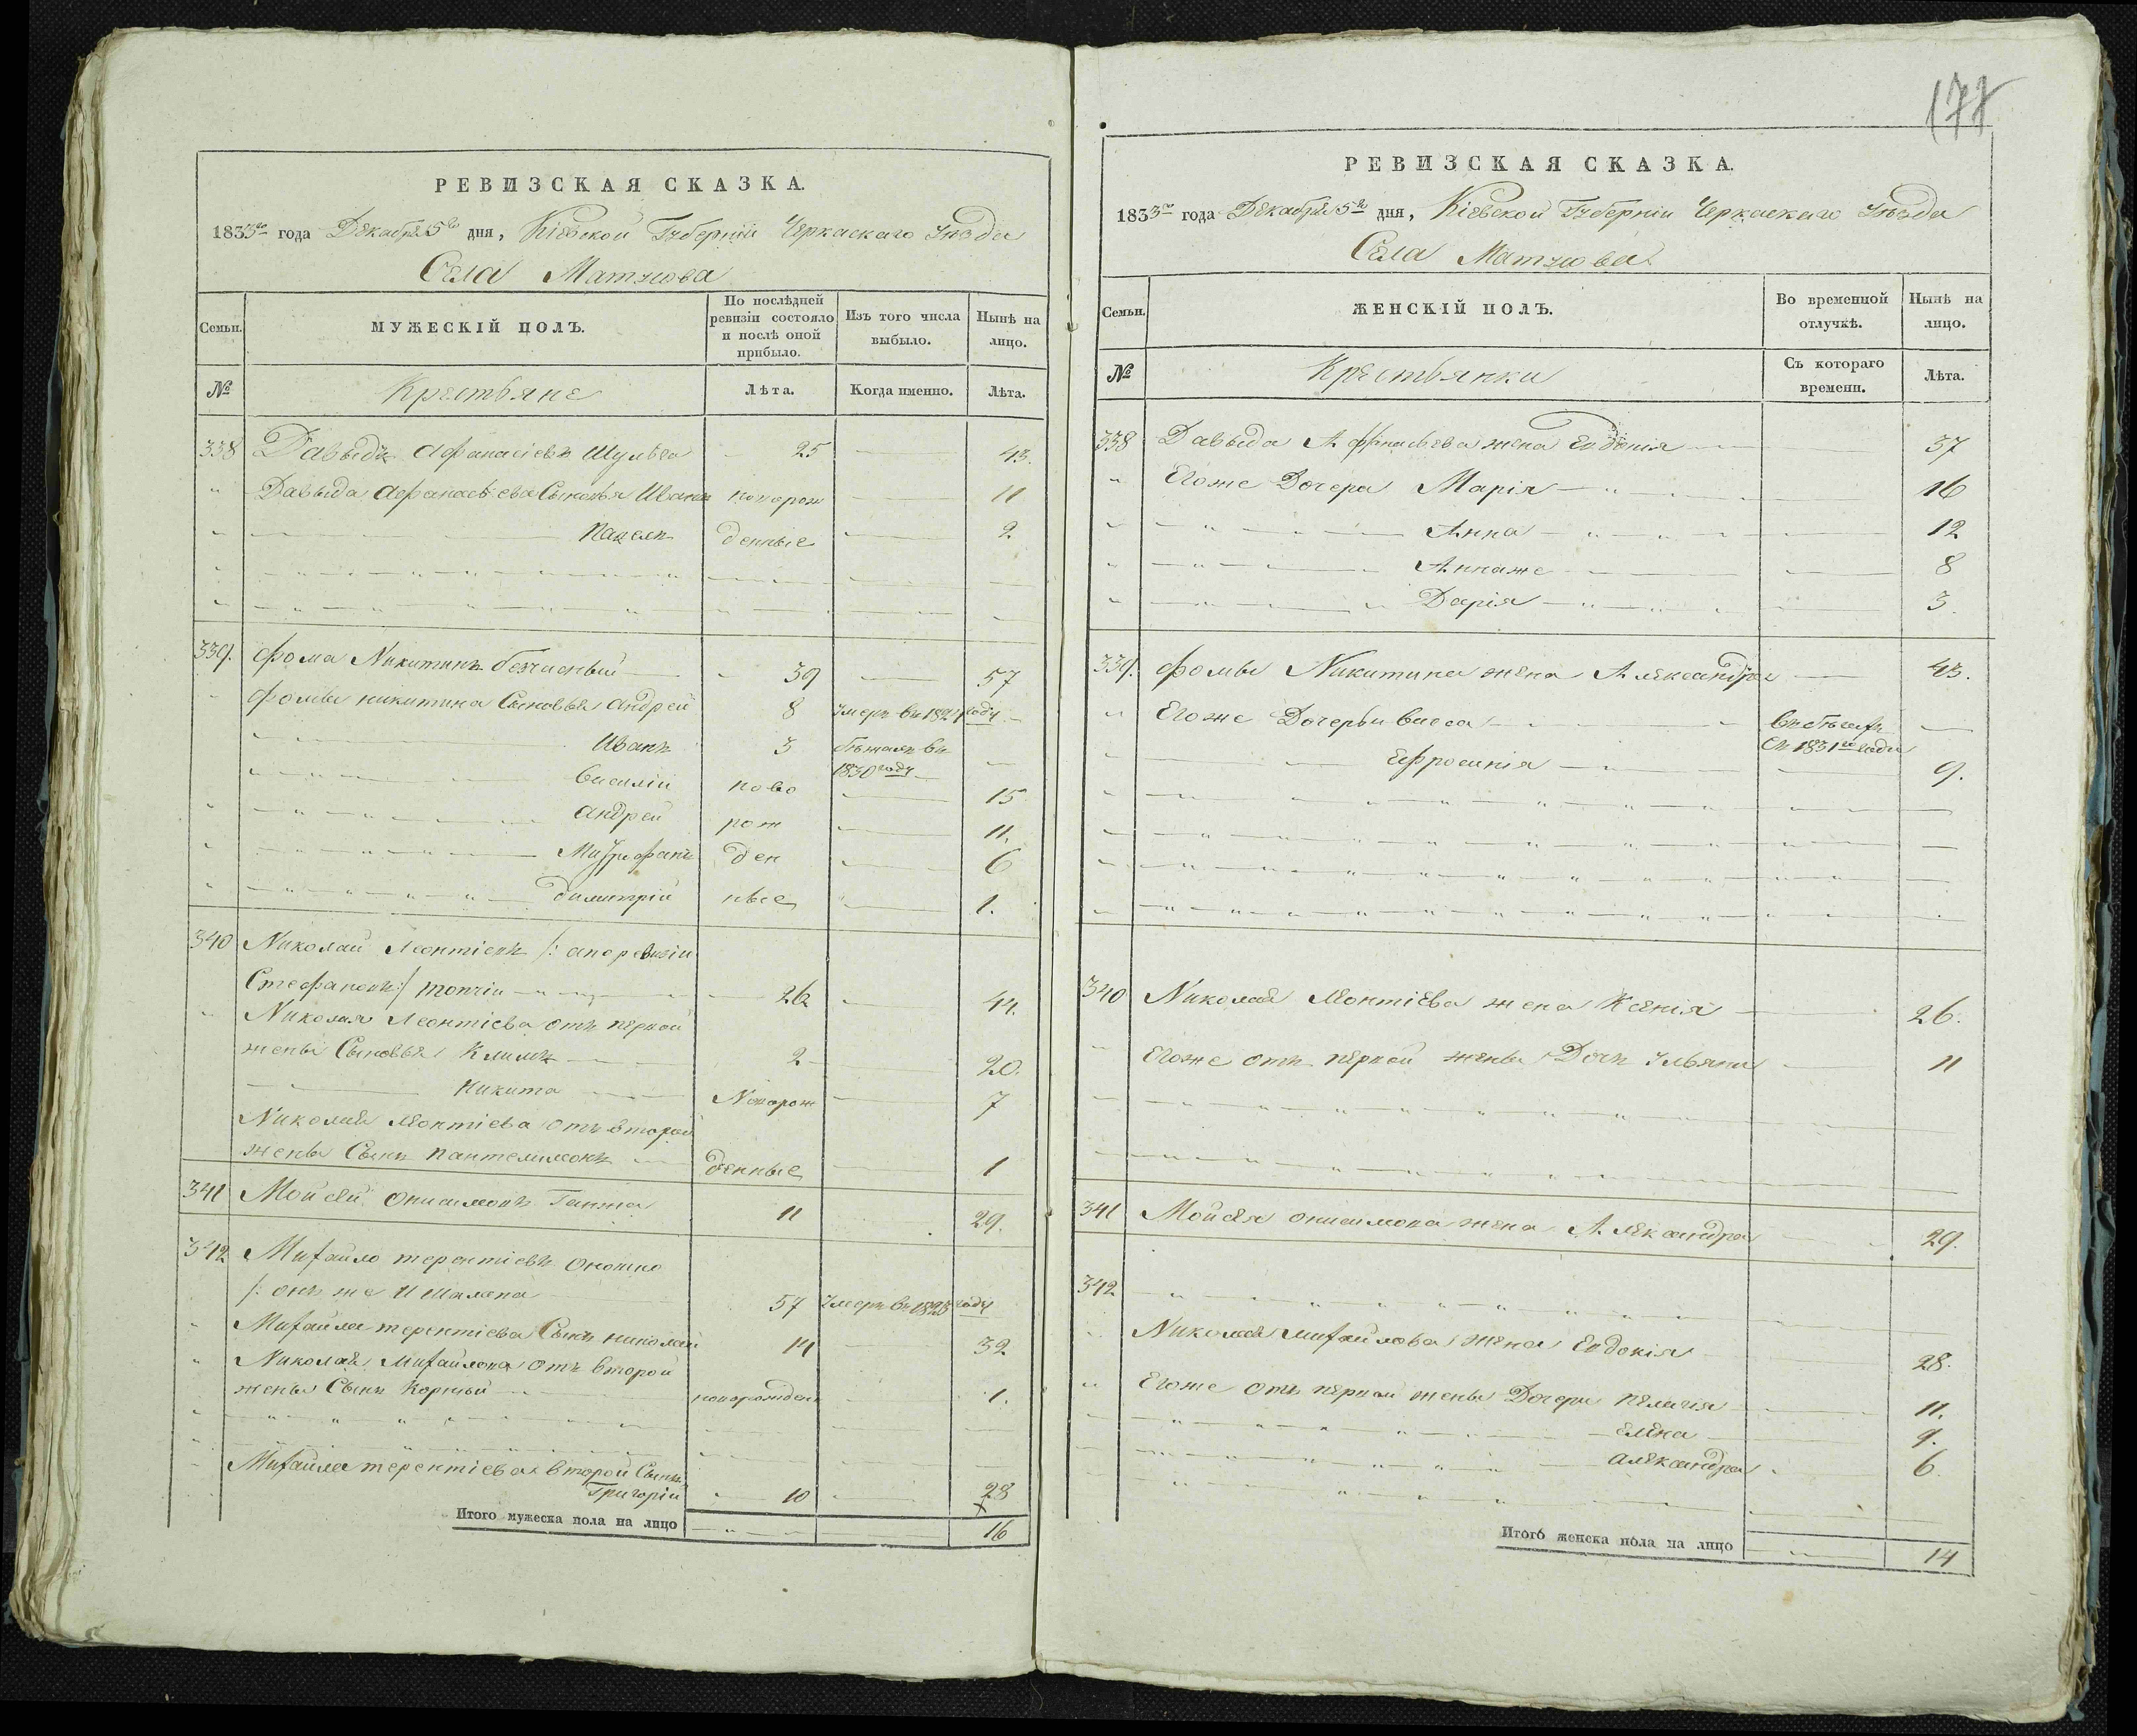 РЕВИЗСКАЯ СКАЗКА.
1833го года Декабря 5го дня, Кіевской Губерніи Черкаскаго Уѣзда
Села Матусова
Семьи.
МУЖЕСКІЙ ПОЛЪ.
По послѣдней ревизіи состояло и послѣ оной прибыло.
Изъ того числа выбыло.
Нынѣ на лицо.
№
Крестьяне
Лѣта.
Когда именно.
Лѣта.
338 Давыдъ Афанасіевъ Шульга 25 43.
Давыда Афанасѣева Сыновья Иванъ новорож 11
денные 2
339. Фома Никитинъ Безчасный 39 57
Фомы Никитина Сыновья Андрей 8 умеръ въ 1821 году
Иванъ 3 бѣжалъ въ
1830 году
Василій ново 15
Андрей рож 11.
Митрофанъ ден 6
Димитрій ные 1.
340 Николай Леонтіевъ /: а по ревизіи
Стефановъ :/ Топчій 26 44.
Николая Леонтіева отъ первой
жены Сыновья Климъ 2 20.
Никита Новорож 7
Николая Леонтіева отъ второй
жены Сынъ Пантелимонъ денные 1
341 Мойсей Онисимовъ Ганжа 11 29.
342 Михайло Терентіевъ
/: онъ же 57 умеръ въ 1823 году
Михайла Терентіева Сынъ Николай 14 32
Николая Михайлова отъ второй
жены Сынъ Корнѣй новорожден 1.
Михайла Терентіева второй Сынъ
Григорій 10 28
Итого мужеска пола на лицо 16
177
РЕВИЗСКАЯ СКАЗКА.
1833го года Декабря 5го дня, Кіевской Губерніи Черкаскаго Уѣзда
Села Матусова
Семьи.
ЖЕНСКІЙ ПОЛЪ.
Во временной отлучкѣ.
Нынѣ на лицо.
№
Крестьянки
Съ котораго времени.
Лѣта.
338 Давыда Афанасьева жена Евдокія 37
Егоже Дочери Марія 16
Анна 12
Аннаже 8
Дарія 3.
339. Фомы Никитина жена Александра 43.
Егоже Дочерьи Васса въ бѣгахъ
съ 1831го года
Ефросинія 9.
340 Николая Леонтіева жена Ксенія 26.
Егоже отъ первой жены Дочь Ульяна 11
341 Мойсея Онисимова жена Александра 29.
342
Николая Михайлова жена Евдокія 28.
Егоже отъ первой жены Дочери Пелагія 11.
Елена 9.
Александра 6.
Итого женска пола на лицо 14